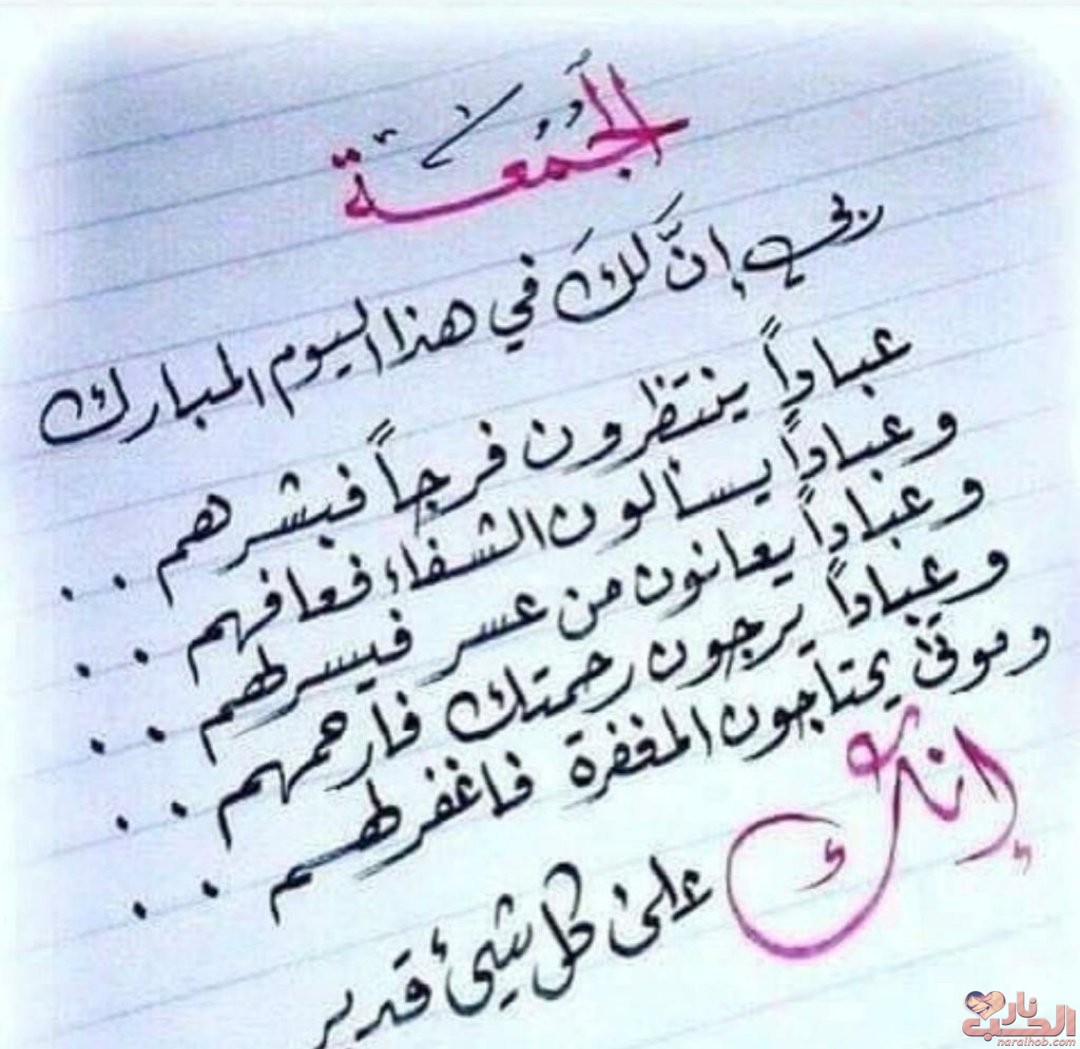 الجُمُعة
ربي إنَّ لكَ في هذا اليوم المبارك
عباداً ينتظرون فرجاً فبشرهم . .
وعباداً يسألون الشفاء فعافهم . .
وعباداً يعانون من عسر فيسر لهم . .
وعباداً يرجون رحمتك فارحمهم . .
وموتى يحتاجون المغفرة فاغفر لهم . .
إنك
على كل شيئ قدير
نار
الحب
naralhob.com